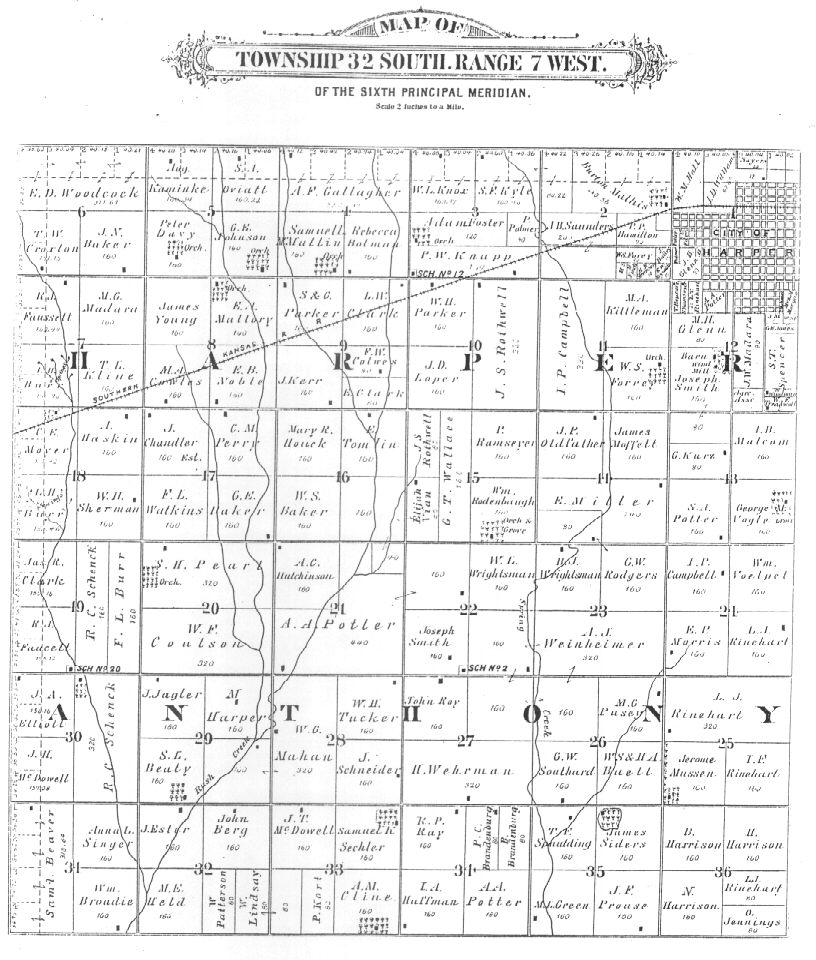 MAP OF
TOWNSHIP 32 SOUTH. RANGE 7 WEST.
OF THE SIXTH PRINCIPAL MERIDIAN.
Scale 2 Inches to a Mile.
E. D. Woodcock
6
T. W.
Croxton
J. N.
Baker
160
Aug.
Kaminke
S. A.
Oviatt
5
Peter
Davy
160
Orch.
G. E.
Johnson
160
Orch
A. F. Gallagher
4
Samuell
McMallin
160
Orch
Rebecca
Holman
W. L. Knox
S. F. Kyle
3
Adam Foster
120
Orch
P.
Palmer
P. W. Knapp
SCH No. 12
Burton Mathis
2
J. H. Saunders
T. P.
Hamilton
W. M. Moll
1
CITY OF
HARPER
Faussett
M. G.
Madara
160
7
T. L.
Kline
160
H
James
Young
160
Orch.
E.
Mallory
160
8
M. A.
Cowles
160
E. B.
Noble
160
A
SOUTHERN
KANSAS
R
R
S & G.
Parker
160
L. W.
Clark
9
J. Kerr
160
F. W.
Colwes
80
E. Clark
R
W. H.
Parker
160
10
J. D.
Loper
160
J. S. Rothwell
320
P
I. P. Campbell
320
M. A.
Killleman
160
11
W. S.
Forrey
160
Orch.
E
M. H.
Glenn
160
Barn
wind
mill
Joseph
Smith
160
J. W. Madara
80
12
S. T.
Spencer
R
Moyer
A.
Haskin
160
18
W. H.
Sherman
160
J.
Chandler
160
Est.
C. M.
Perry
160
17
F. L.
Watkins
160
G. E.
Baker
160
Mary R.
Houck
160
E.
Tomlin
160
16
W. S.
Baker
160
J. S.
Rothwell
G. T. Wallace
160
Elijah
Vian
P.
Ramseyer
160
15
Wm.
Rodenbaugh
160
Orch &
Grove
J. P.
Oldfather
160
James
Moffett
160
14
E. Miller
240
80
80
G. Kurz
80
I. B.
Malcom
160
13
S. A.
Potter
160
George
Vogle
Jas. R.
Clark
R. C. Schenck
160
F. L. Burr
160
19
R. J.
Faucett
SCH No 20
S. H. Pearl
320
Orch.
20
W. F.
Coulson
320
A. C.
Hutchinson
160
21
A. A. Potter
440
160
W. L.
Wrightsman
160
22
Joseph
Smith
160
SCH No 2
H. J.
Wrightsman
160
G. W.
Rodgers
160
23
A. J.
Weinheimer
320
Spring
Creek
I. P.
Campbell
160
Wm.
Voelpel
160
24
E. P.
Morris
160
L. J.
Rinehart
160
J. A.
Elliott
A
30
R. C. Schenck
320
J. H.
McDowell
J. Jagler
160
M
Harper
160
N
29
S. L.
Beaty
160
160
Rush
Creek
T
W. G.
Mahan
320
W. H.
Tucker
160
28
J.
Schneider
160
John Roy
160
H
160
27
H. Wehrman
320
O
160
M. G.
Pusey
160
N
26
G. W.
Southard
160
W S & H A
Buell
160
L. J.
Rinehart
320
Y
25
Jerome
Musson
160
T. F.
Rinehart
160
Saml Beaver
Anna L.
Singer
160
31
Wm.
Broudie
160
J. Ester
160
John
Berg
160
32
M. E.
Held
160
W
Patterson
80
W.
Lindsay
J. T.
McDowell
160
Samuel K
Sechler
160
33
80
P. Kort
80
A. M.
Cline
160
R. P.
Ray
160
P. C.
Brandenburg
80
Brandenburg
80
34
I. A.
Huffman
160
A. A.
Potter
160
T. E.
Spaulding
160
James
Siders
160
35
M. L. Green
160
J. F.
Prouse
160
B.
Harrison
160
H.
Harrison
160
36
N.
Harrison
160
L. J.
Rinehart
80
O.
Jennings
80